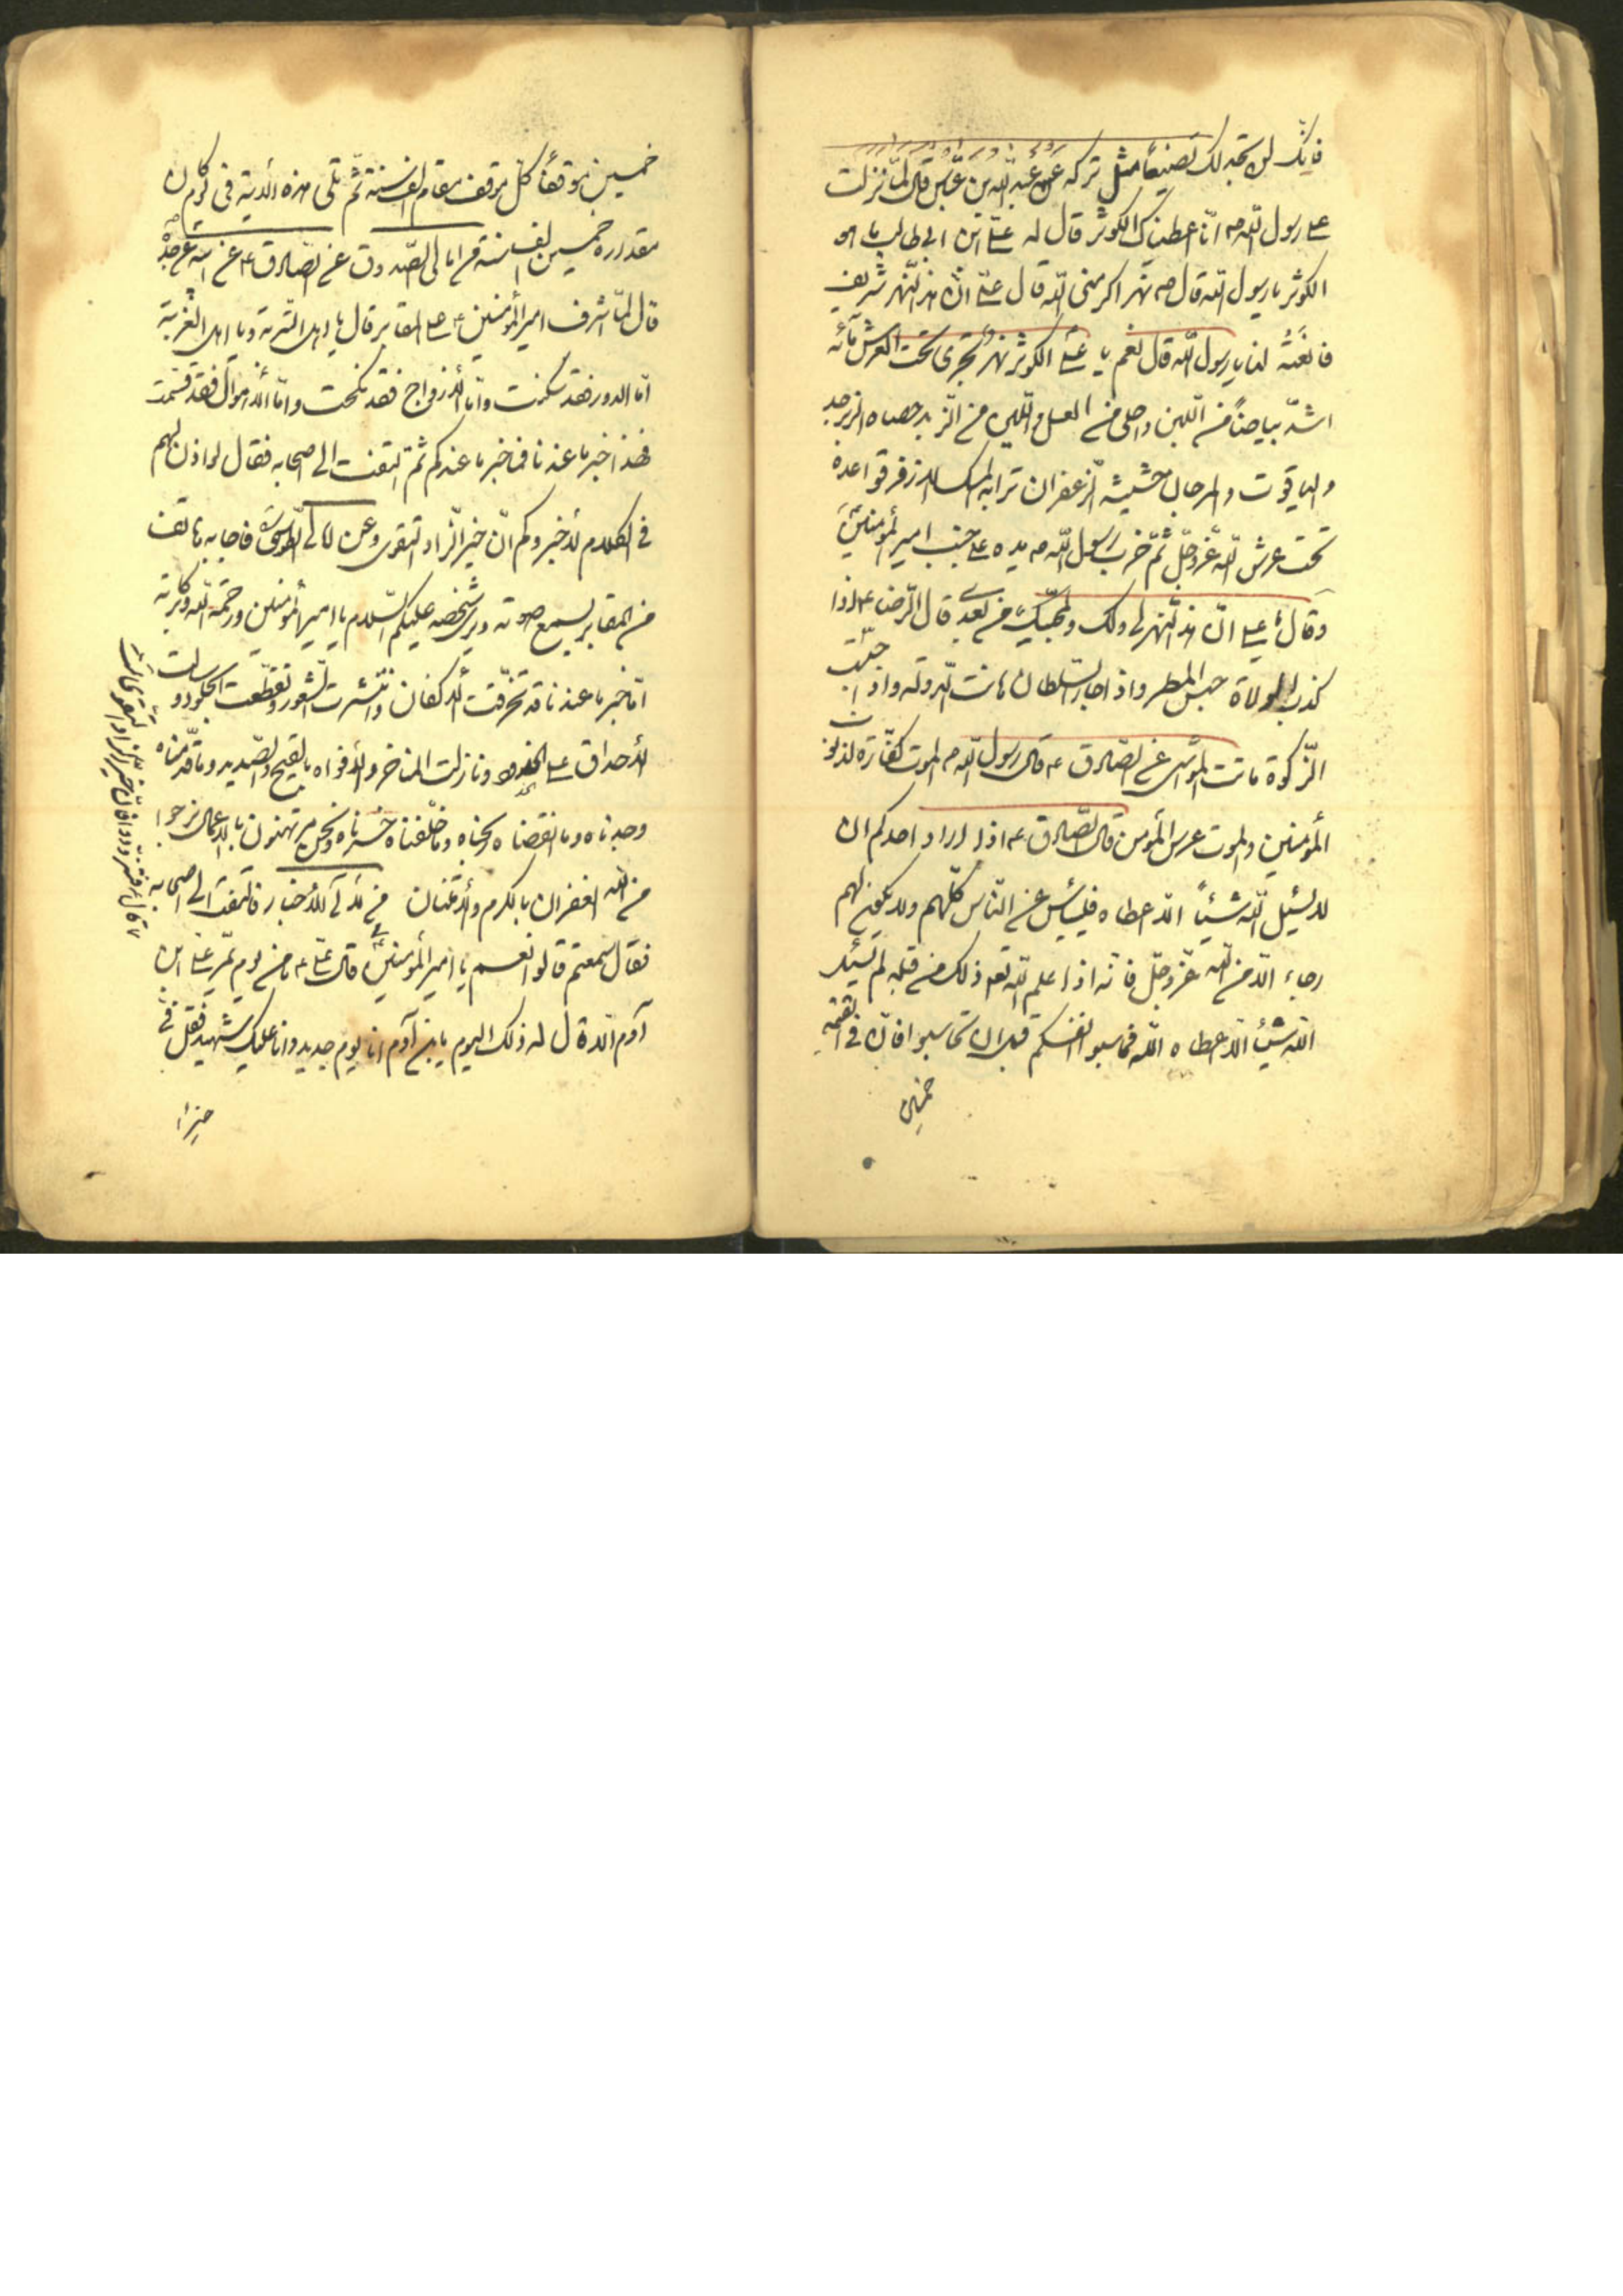 فانّك لن تجد لك تصنيعاً مثل تركه عن عبد الله بن عبّاس قال لمّا نزلت
على رسول الله ص انّا اعطيناك الكوثر قال له علىّ ابن ابى طالب ما هو
الكوثر يا رسول الله قال ص نهر اكرمنى الله قال علىّ انّ هذا النّهر شريف
فانعته لنا يا رسول الله قال نعم يا علىّ الكوثر نهر تجرى تحت العرش مائه
اشدّ بياضاً من اللبن واحلى من العسل واللين من الزّبد حصاه الزبرجد
والياقوت والمرجان حشيشه الزّعفران ترابه المسك الاذفر قواعده
تحت عرش الله عزّ وجلّ ثمّ ضرب رسول الله ص يده على جنب امير المؤمنين
وقال يا على انّ هذا النّهر لى ولك ولمحبّيك من بعدى قال الرّضا ع اذا
كذب الولاة حبس المطر واذا جار السّلطان هانت الدولة واذا حبست
الزّكوة ماتت المواشى عن الصّادق ع قال رسول الله ص الموت كفّارة لذنوب
المؤمنين والموت عرس المؤمن قال الصّادق ع اذا اراد احدكم ان
لا يسئل الله شيئاً الّا اعطاه فليأيس عن النّاس كلّهم ولا يكون لهم
رجاء الّا من الله عزّ وجلّ فانّه اذا علم الله تعه ذلك من قلبه لم يسئل
الله شيئاً الّا اعطاه الله فحاسبوا انفسكم قبل ان تحاسبوا فانّ فى القيمة
خمسين
خمسين موقفاً كلّ موقف مقام الف سنة ثمّ تلى هذه الآية فى يوم كان
مقداره خمسين الف سنة من امالى الصّدوق عن الصّادق ع عن ابيه عن جدّه
قال لمّا اشرف امير المؤمنين ع على المقابر قال يا اهل التّربة ويا اهل الغربة
امّا الدور فقد سكنت وامّا الازواج فقد نكحت وامّا الاموال فقد قسمت
فهذا خبر ما عندنا فما خبر ما عندكم ثمّ التفت الى اصحابه فقال لو اذن لهم
فى الكلام لاخبروكم انّ خير الزّاد التّقوى وعن امالى الطّوسى فاجابه هاتف
من المقابر يسمع صوته ويرى شخصه عليكم السّلام يا امير المؤمنين ورحمة الله وبركاته
امّا خبر ما عندنا قد تخرّقت الاكفان وانتثرت الشعور وتقطّعت الجلود وسالت
الاحداق على الخدود ونازلت المناخر والافواه بالقيح والصّديد وما قدّمناه
وجدناه وما انفقناه ربحناه وما خلّفناه خسرناه ونحن مرتهنون بالاعمال نرجوا
من الله الغفران بالكرم والامتنان من لآلى الاخبار فالتفت الى اصحابه
فقال سمعتم قالوا نعم يا امير المؤمنين قال علىّ ع ما من يوم يمّر على ابن
آدم الّا قال له ذلك اليوم يابن آدم انا يوم جديد وانا عليك شهيد فقل فىّ
خيرا